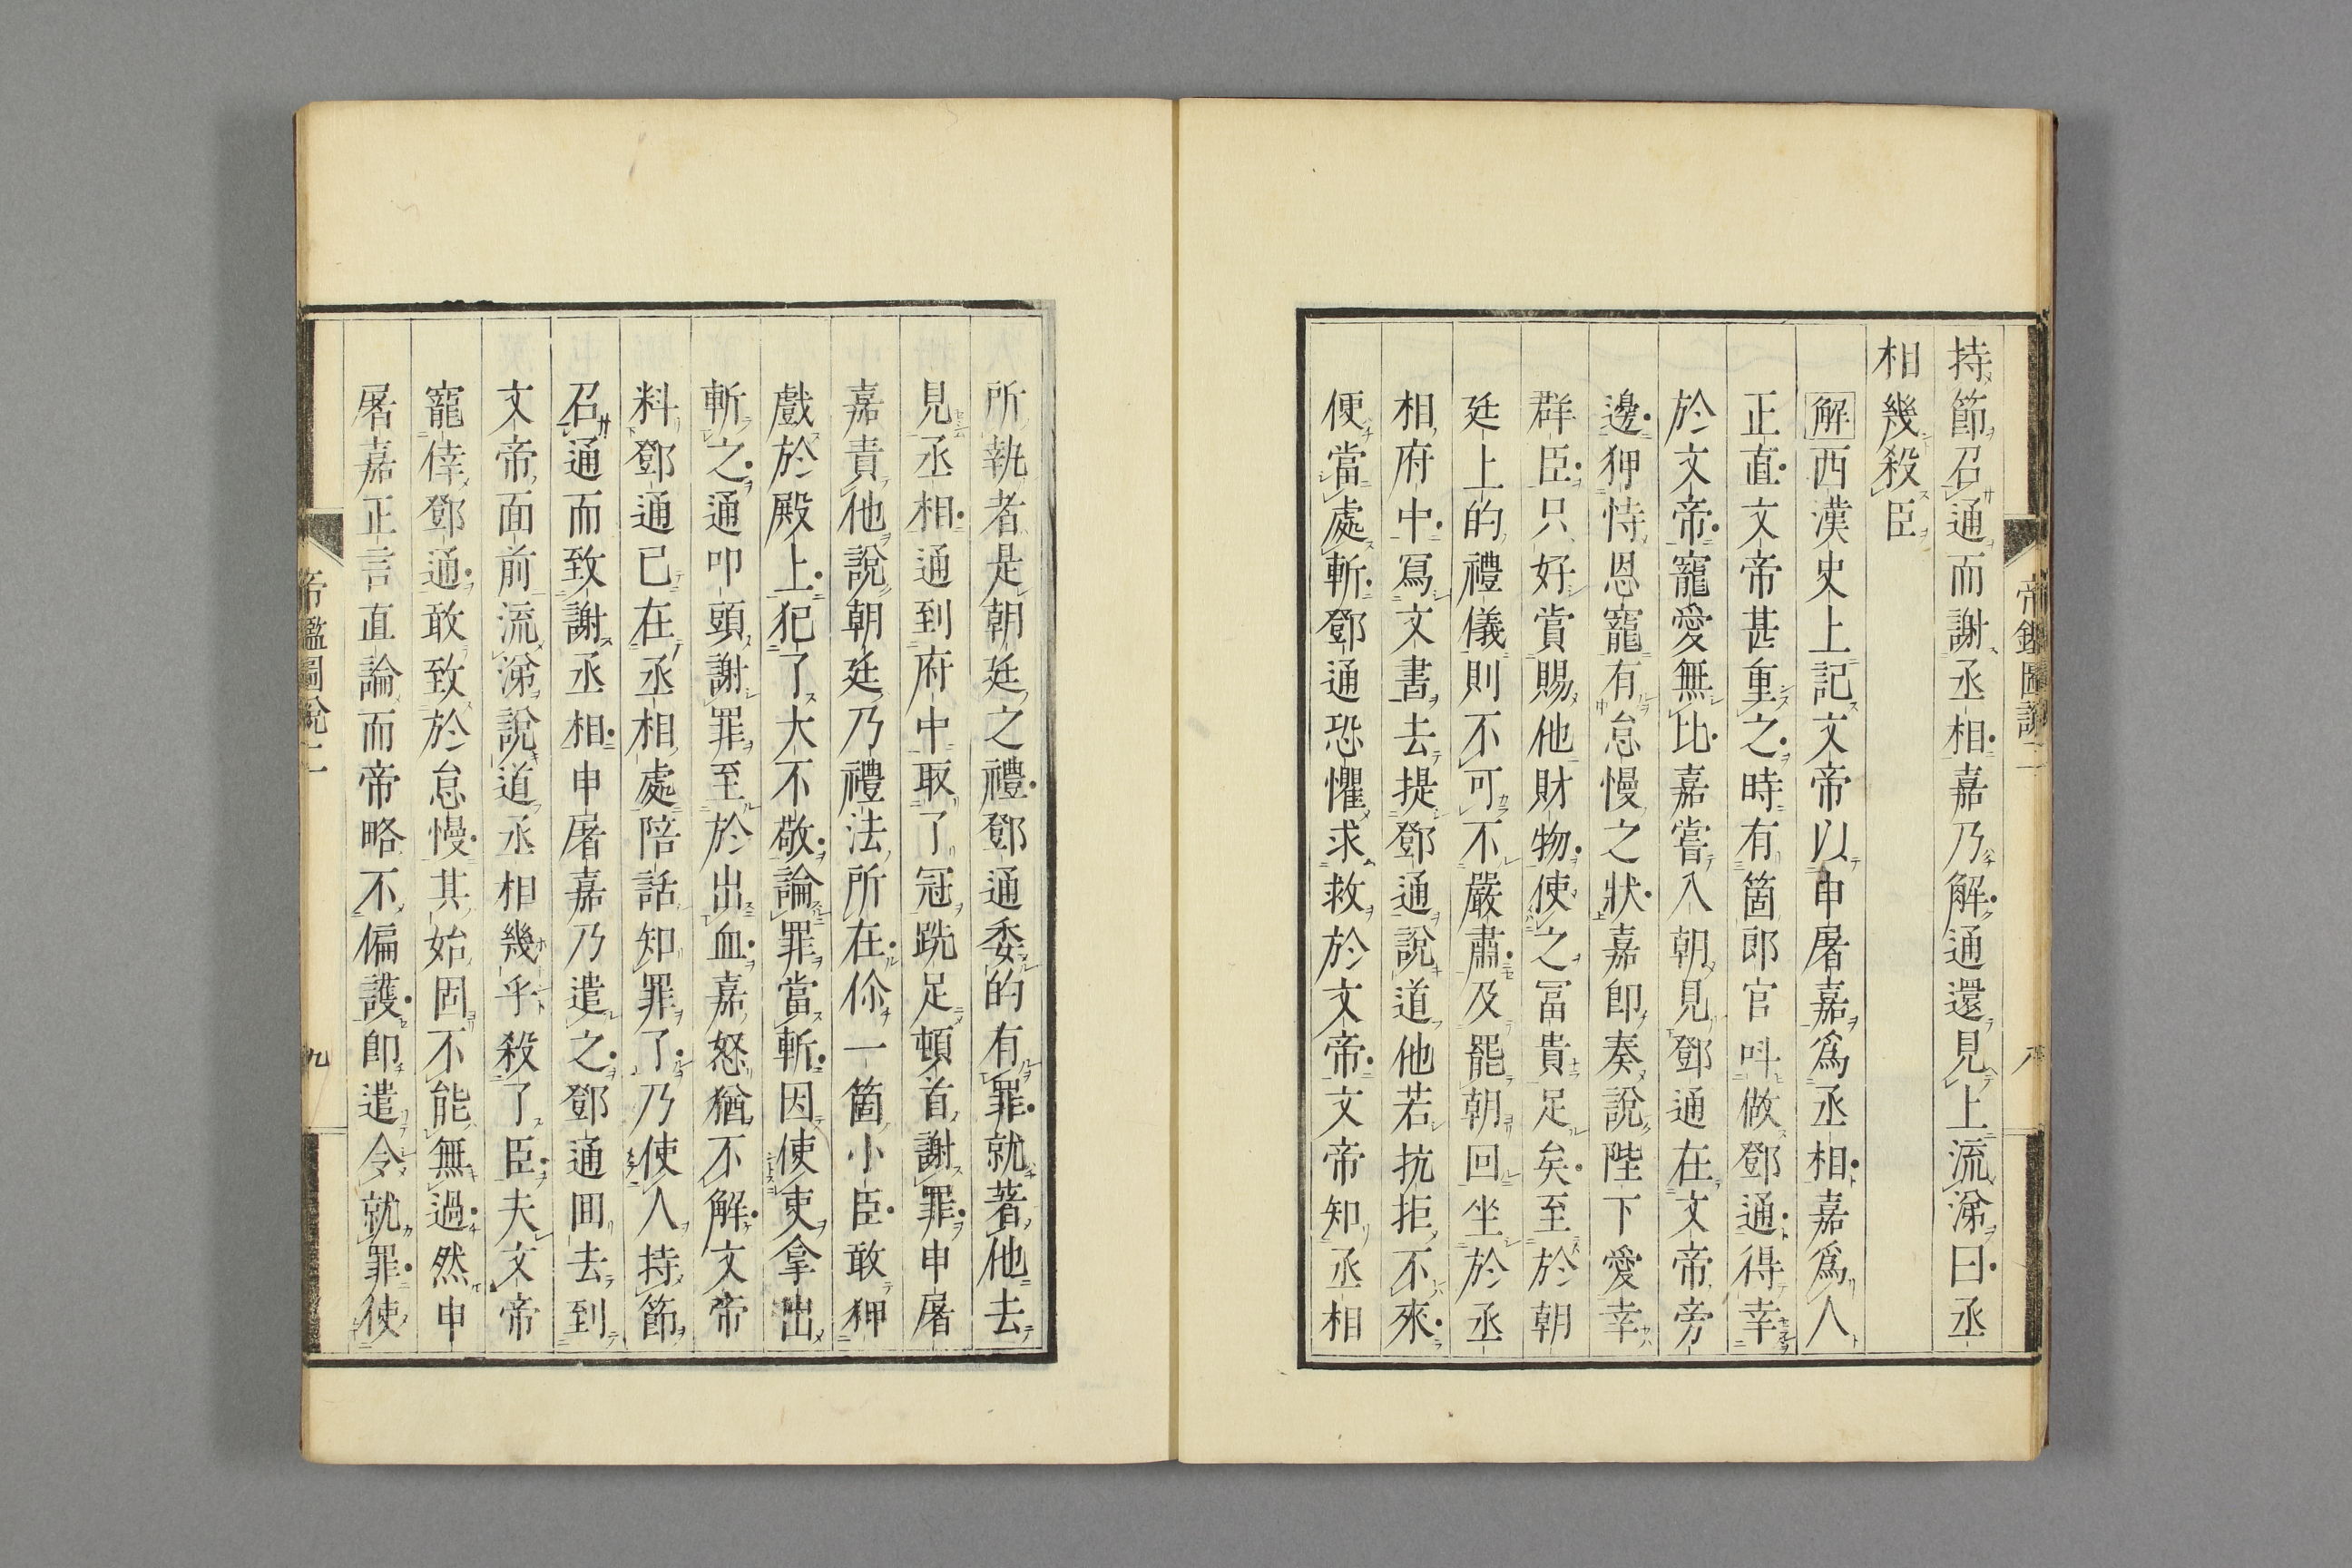 帝鑑圖說二
八
持節召通而謝丞相嘉乃解通還見上流涕曰丞
相幾殺臣
解西漢史上記文帝以申屠嘉爲丞相嘉爲人
正直文帝甚重之時有箇郎官呌做鄧通得幸
於文帝寵愛無比嘉嘗入朝見鄧通在文帝旁
邊狎恃恩寵有怠慢之狀嘉卽奏說陛下愛幸
群臣只好賞賜他財物使之冨貴足矣至於朝
廷上的禮儀則不可不嚴肅及罷朝回坐於丞
相府中寫文書去提鄧通說道他若抗拒不來
便當處斬鄧通恐懼求救於文帝文帝知丞相
所執者是朝廷之禮鄧通委的有罪就著他去
見丞相通到府中取了冠跣足頓首謝罪申屠
嘉責他說朝廷乃禮法所在你一箇小臣敢狎
戲於殿上犯了大不敬論罪當斬因使吏拿出
斬之通叩頭謝罪至於出血嘉怒猶不解文帝
料鄧通已在丞相處陪話知罪了乃使人持節
召通而致謝丞相申屠嘉乃遣之鄧通囬去到
文帝面前流涕說道丞相幾乎殺了臣夫文帝
寵倖鄧通敢致於怠慢其始固不能無過然申
屠嘉正言直論而帝略不偏護卽遣令就罪使
帝鑑圖說二
九